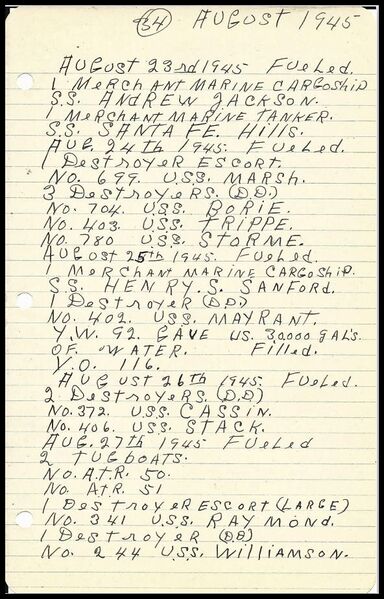 34 AUGUST 1945
AUGUST 23rd 1945 FUELED.
1 MERCHANT MARINE CARGOSHIP
S.S. ANDREW JACKSON.
1 MERCHANT MARINE TANKER.
S.S. SANTA FE. Hills.
AUG. 24th 1945 FUELED.
1 DESTROYER ESCORT.
NO. 699. U.S.S. MARSH.
3 DESTROYERS. (D.D.)
NO. 704. U.S.S. BORIE.
NO. 403. U.S.S. TRIPPE.
NO. 780 U.S.S. STORME.
AUGUST 25th 1945. FUELED.
1 MERCHANT MARINE CARGOSHIP.
S.S. HENRY. S. SANFORD.
1 DESTROYER (D.D.)
NO. 402. U.S.S. MAYRANT.
Y.W. 92. GAVE US. 30,000 GAL'S.
OF WATER. Filled.
Y.O. 116.
AUGUST 26th 1945 FUELED.
2 DESTROYERS (D.D)
NO. 372. U.S.S. CASSIN.
NO. 406. U.S.S. STACK.
AUG. 27th 1945 FUELED
2 TUGBOATS.
NO. A.T.R. 50.
NO. A.T.R. 51
1 DESTROYER ESCORT (LARGE)
NO. 341 U.S.S. RAYMOND.
1 DESTROYER (DD)
NO. 244 U.S.S. WILLIAMSON.